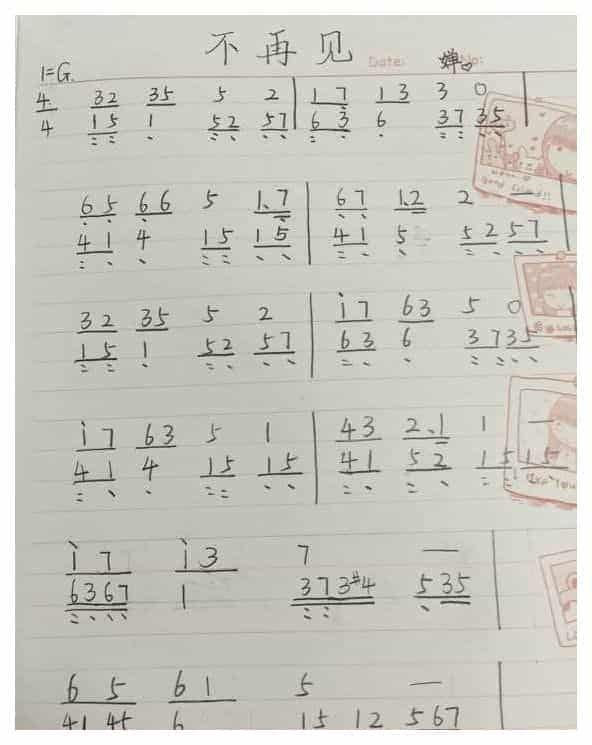 不再见
Date: 婵 No:
1=G
4/4 32 35 5 2 | 17 13 3 0 |
15 1 52 57 | 63 6 37 35
65 66 5 1.7 | 67 1.2 2
41 4 15 15 | 41 5 52 57
32 35 5 2 | 17 63 5 0
15 1 52 57 | 63 6 37 35
17 63 5 1 | 43 2.1 1 —
41 4 15 15 | 41 52 15 15
17 13 7 — |
6367 1 373#4 535
65 61 5 — |
41 45 6 15 12 567